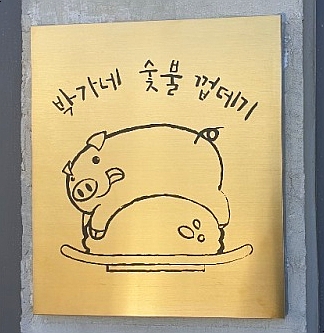 박가네 숯불 껍데기